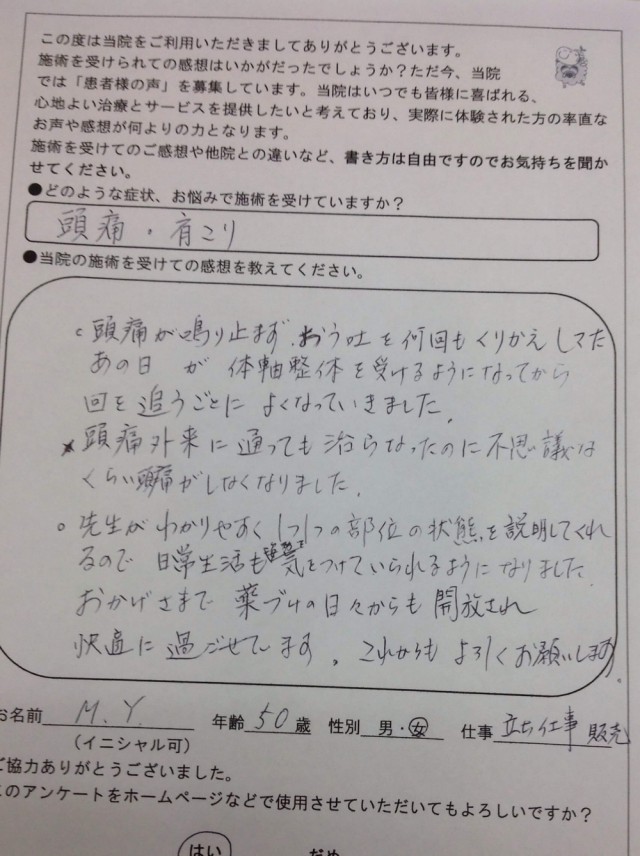 この度は当院をご利用いただきましてありがとうございます。
施術を受けられての感想はいかがだったでしょうか？ただ今、当院
では「患者様の声」を募集しています。当院はいつでも皆様に喜ばれる、
心地よい治療とサービスを提供したいと考えており、実際に体験された方の率直な
お声や感想が何よりの力となります。
施術を受けてのご感想や他院との違いなど、書き方は自由ですのでお気持ちを聞か
せてください。
●どのような症状、お悩みで施術を受けていますか？
頭痛・肩こり
●当院の施術を受けての感想を教えてください。
○頭痛が鳴り止まず、おう吐を何回もくりかえしてた
あの日が体軸整体を受けるようになってから
回を追うごとによくなっていきました。
★頭痛外来に通っても治らなったのに不思議な
くらい頭痛がしなくなりました。
○先生がわかりやすく1つ1つの部位の状態を説明してくれ
るので日常生活も気をつけていられるようになりました
おかげさまで薬づけの日々からも開放され
快適に過ごせています。これからもよろしくお願いします。
お名前 M.Y. 年齢 50 歳 性別 男・女 仕事 立ち仕事 販売
（イニシャル可）
ご協力ありがとうございました。
このアンケートをホームページなどで使用させていただいてもよろしいですか？
はい だめ